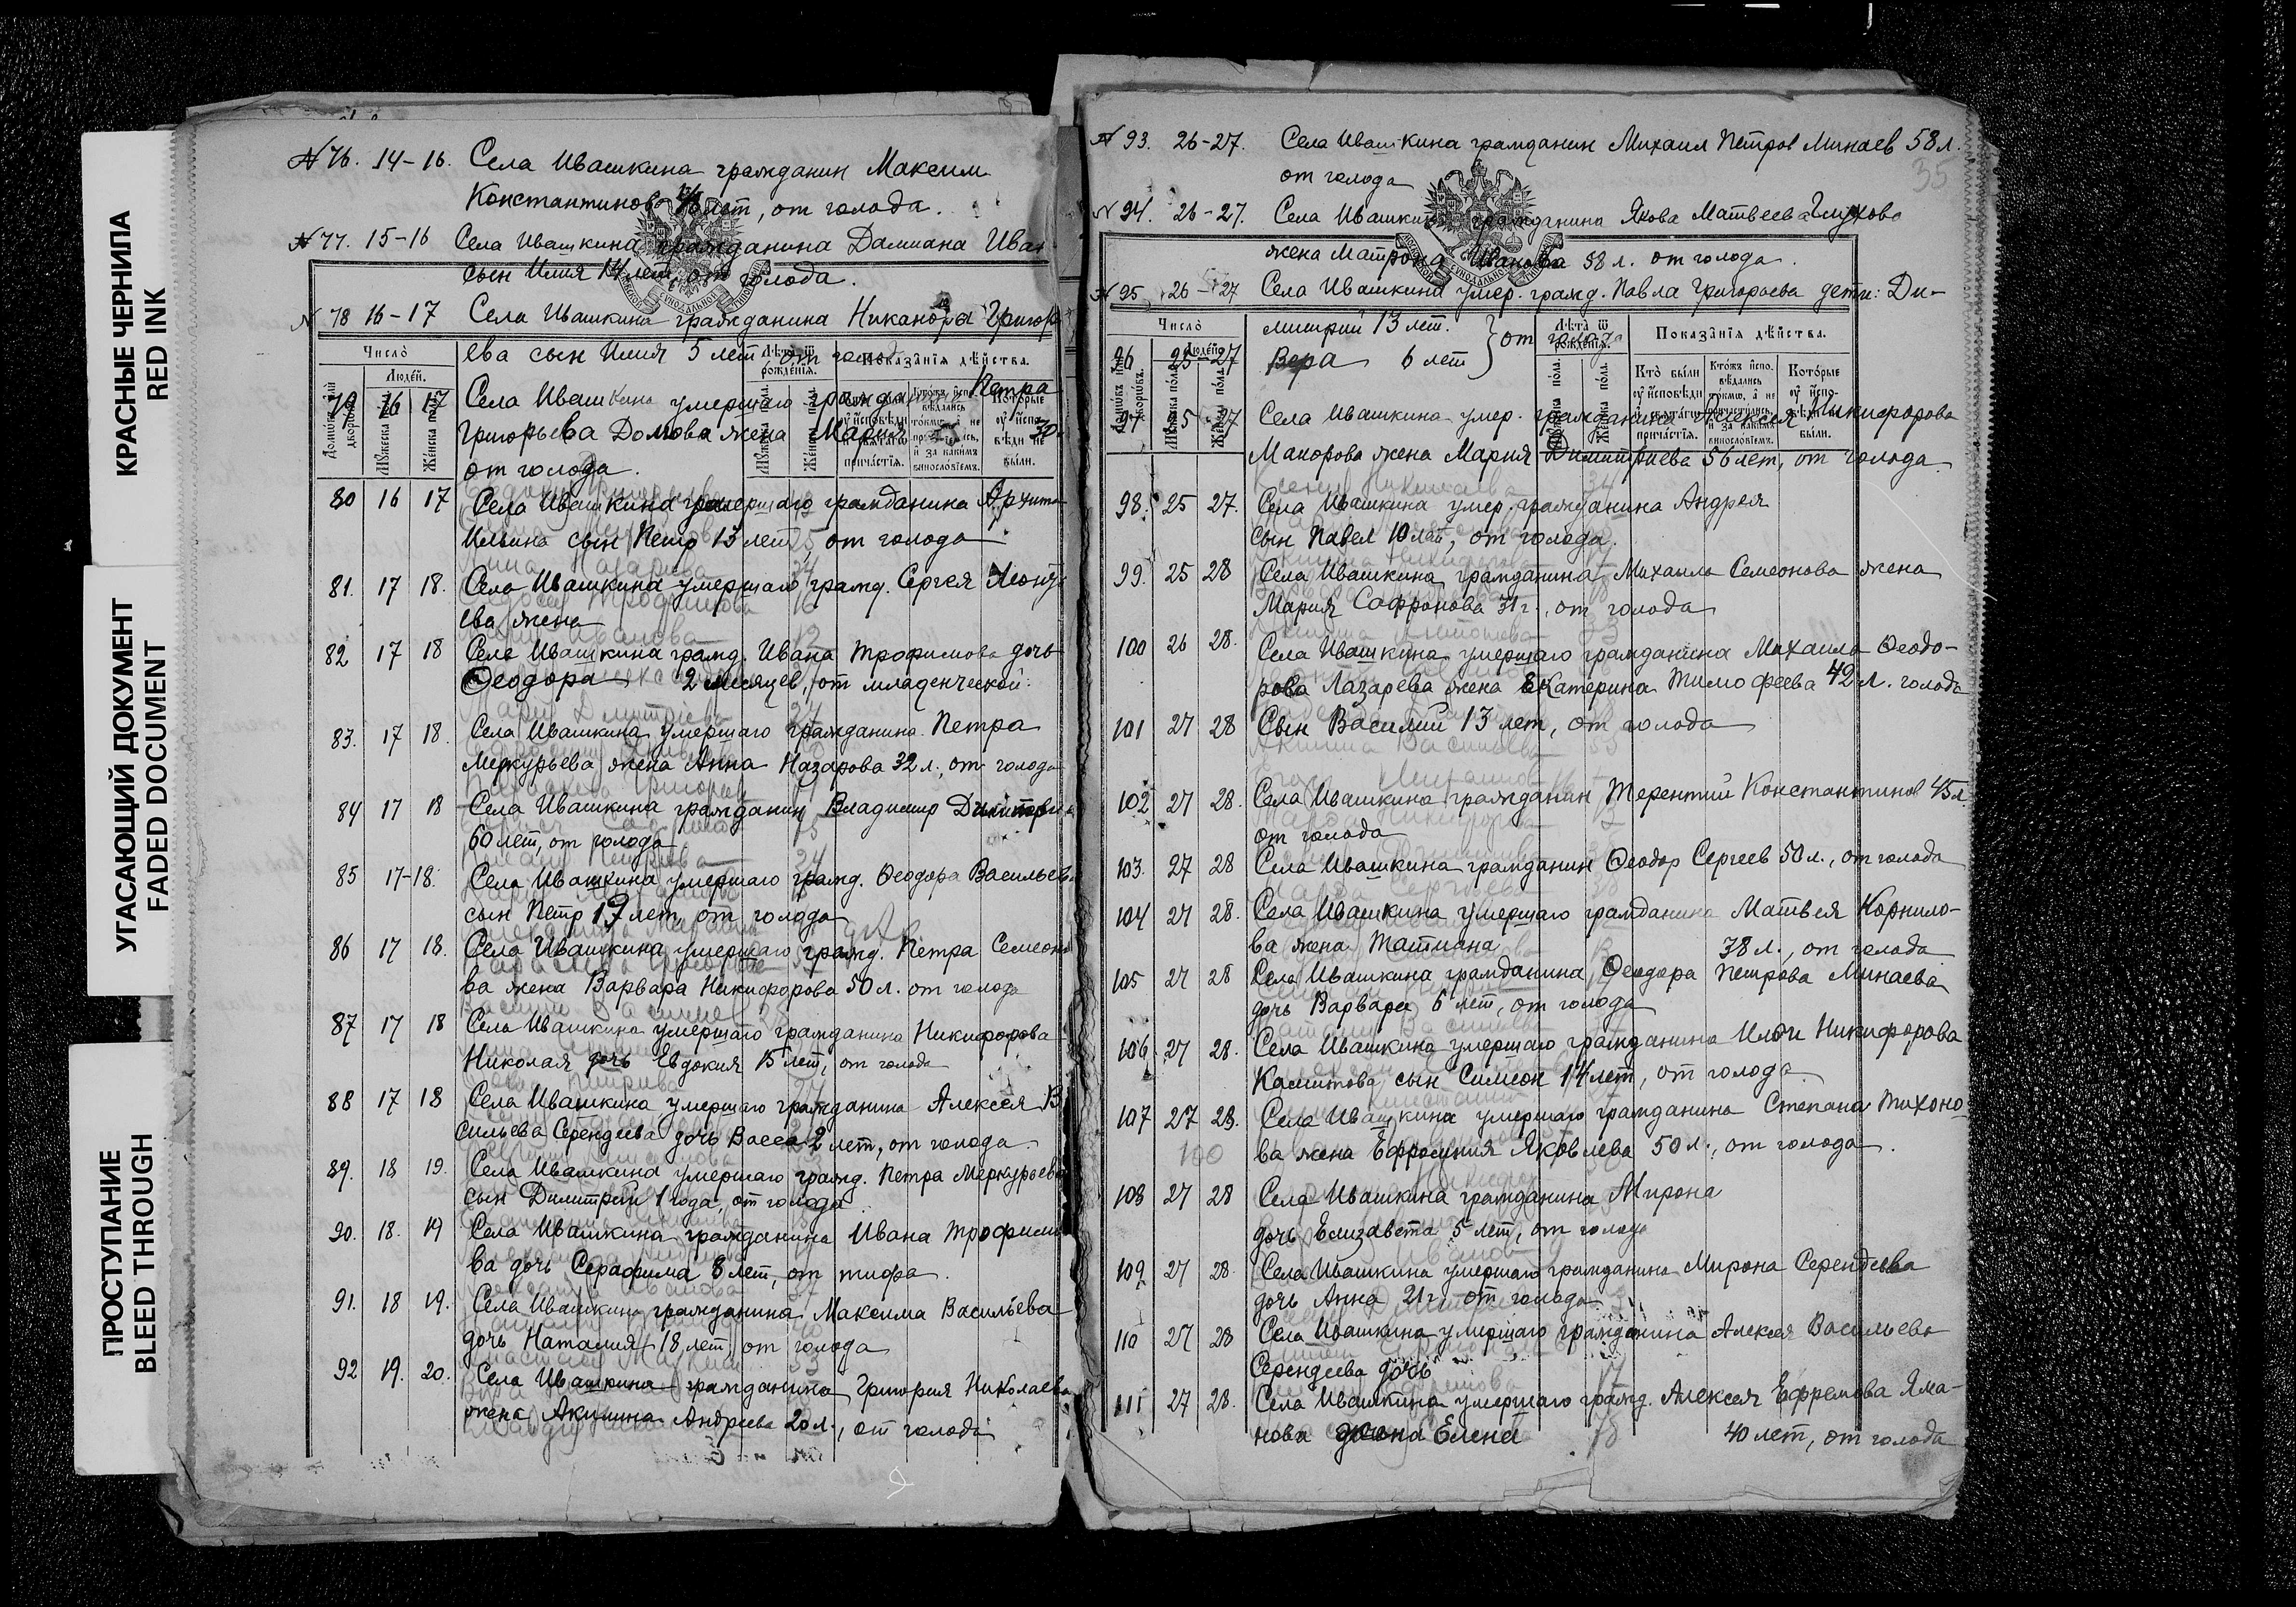 КРАСНЫЕ ЧЕРНИЛА
RED INK
УГАСАЮЩИЙ ДОКУМЕНТ
FADED DOCUMENT
ПРОСТУПАНИЕ
BLEED THROUGH
№ 76. 14-16. Села Ивашкина гражданин Максим
Константинов лет, от голода.
№ 77. 15-16 Села Ивашкина гражданина Дамиана Иван
сын Илия 14 лет, от голода.
№ 78 16-17 Села Ивашкина гражданина Никанора Григорь
ева сын Илия 5 лет от голода
Число
Людей.
Лѣта ѿ рожденїѧ.
Показанїѧ дѣйства.
79 16 17 Села Ивашкина умершаго гражданина Петра
Григорьева Домова жена Мария 30
от голода.
80 16 17 Села Ивашкина умершаго гражданина Архипа
Ильина сын Петр 13 лет от голода
81. 17 18. Села Ивашкина умершаго гражд. Сергея Леонть
ева жена
82 17 18 Села Ивашкина гражд. Ивана Трофимова дочь
Феодора 2 месяцев, от младенческой.
83. 17 18. Села Ивашкина умершаго гражданина Петра
Меркурьева жена Анна Назарова 32 л., от голода
84 17 18 Села Ивашкина гражданин Владимир Димитрі
60 лет, от голода
85 17-18. Села Ивашкина умершаго гражд. Феодора Васильев
сын Петр 19 лет, от голода
86 17 18. Села Ивашкина умершаго гражд. Петра Семеоно
ва жена Варвара Никифорова 50 л. от голода
87 17 18 Села Ивашкина умершаго гражданина Никифорова
Николая дочь Евдокия 15 лет, от голода
88 17 18 Села Ивашкина умершаго гражданина Алексея В
сильева Серендеева дочь Васса 2 лет, от голода
89. 18 19. Села Ивашкина умершаго гражд. Петра Меркурьева
сын Димитрий 1 года, от голода
90. 18. 19 Села Ивашкина гражданина Ивана Трофимо
ва дочь Серафима 8 лет, от тифа.
91. 18 19. Села Ивашкина гражданина Максима Васильева
дочь Наталия 18 лет, от голода
92 19. 20. Села Ивашкина гражданина Григория Николаева
жена Акилина Андреева 20 л., от голода
35
№ 93. 26-27. Села Ивашкина гражданин Михаил Петров Минаев 58 л.
от голода
№ 94. 26-27. Села Ивашкина гражданина Якова Матвеева Глухова
жена Матрона Иванова 58 л. от голода.
№ 95 26-27 Села Ивашкина умер. гражд. Павла Григорьева дети: Ди-
митрий 13 лет.
96 25-27 Вера 6 лет } от голода
Число
Людей.
Лѣта ѿ рожденїѧ.
Показанїѧ дѣйства.
97 25 27 Села Ивашкина умер. гражданина Алексея Никифорова
Макорова жена Мария Димитриева 56 лет, от голода.
98. 25 27. Села Ивашкина умер. гражданина Андрея
сын Павел 10 лет, от голода.
99. 25 28 Села Ивашкина гражданина Михаила Семеонова жена
Мария Сафронова 31 г., от голода
100 26 28. Села Ивашкина умершаго гражданина Михаила Феодо-
рова Лазарева жена Екатерина Тимофеева 42 л. голода
101 27 28 Сын Василий 13 лет, от голода
102 27 28. Села Ивашкина гражданин Терентий Константинов 45 л
от голода
103. 27 28 Села Ивашкина гражданин Феодор Сергеев 50 л., от голода
104 27 28. Села Ивашкина умершаго гражданина Матвея Корнило-
ва жена Татиана 38 л., от голода
105 27 28 Села Ивашкина гражданина Феодора Петрова Минаева
дочь Варвара 6 лет, от голода
106. 27 28. Села Ивашкина умершаго гражданина Илии Никифорова
сын Симеон 14 лет, от голода
107 27 28. Села Ивашкина умершаго гражданина Степана Тихоно-
ва жена Ефросиния Яковлева 50 л., от голода.
100
108 27 28 Села Ивашкина гражданина Мирона
дочь Елизавета 5 лет, от голода
109 27 28. Села Ивашкина умершаго гражданина Мирона Серендеева
дочь Анна 21 г. от голода
110 27 28 Села Ивашкина умершаго гражданина Алексея Васильева
Серендеева дочь
111 27 28. Села Ивашкина умершаго гражд. Алексея Ефремова Яма-
нова жена Елена 40 лет, от голода